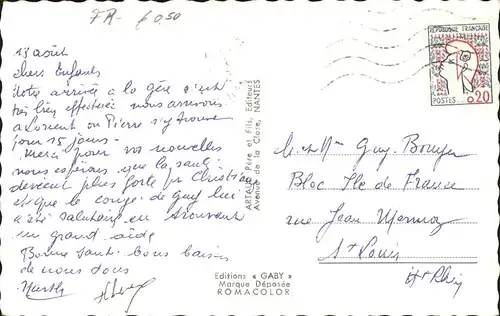 FR - € 0,50
13 août
chers Enfants
Notre arrivée à la gare s'est
très bien effectuée nous arrivons
à Lorient où Pierre s'y trouve
pour 15 jours -
Merci pour vos nouvelles
nous espérons que la santé
devient plus forte pr Christian
et que le congé de Guy lui
a été salutaire en trouvant
un grand aide
Bonne santé bons baisers
de nous tous
Marthe
ARTAUD Père et Fils, Editeurs
Avenue de la Close, NANTES
Editions « GABY »
Marque Déposée
ROMACOLOR
REPUBLIQUE FRANÇAISE
POSTES 0,20
M. et Mme Guy Bouyer
Bloc Ile de France
rue Jean Mermoz
St Louis
Ht Rhin